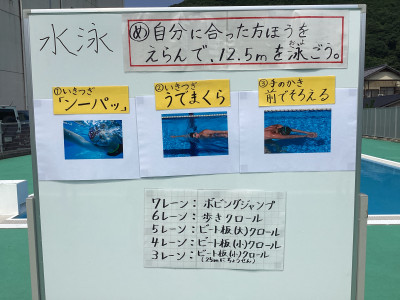 水泳
め 自分に合った方ほうを
えらんで、12.5mを泳ごう。
およ
①いきつぎ
「ソーパッ」
②いきつぎ
うでまくら
③手のかき
前でそろえる
7レーン：ボビングジャンプ
6レーン：歩きクロール
5レーン：ビート板(大)クロール
4レーン：ビート板(小)クロール
3レーン：ビート板(小)クロール
(25mにちょうせん)